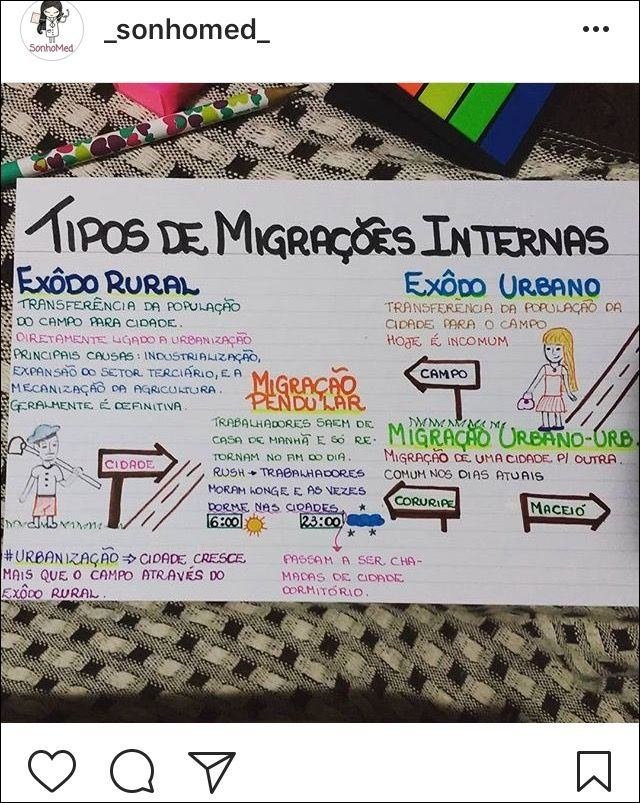 SonhoMed
_sonhomed_
TIPOS DE MIGRAÇÕES INTERNAS
EXÔDO RURAL
TRANSFERÊNCIA DA POPULAÇÃO
DO CAMPO PARA CIDADE.
DIRETAMENTE LIGADO A URBANIZAÇÃO
PRINCIPAIS CAUSAS: INDUSTRIALIZAÇÃO,
EXPANSÃO DO SETOR TERCIÁRIO, E A
MECANIZAÇÃO DA AGRICULTURA.
GERALMENTE É DEFINITIVA.
CIDADE
#URBANIZAÇÃO ⇒ CIDADE CRESCE
MAIS QUE O CAMPO ATRAVÉS DO
EXÔDO RURAL.
MIGRAÇÃO
PENDULAR
TRABALHADORES SAEM DE
CASA DE MANHÃ E SÓ RE-
TORNAM NO FIM DO DIA.
RUSH → TRABALHADORES
MORAM LONGE E AS VEZES
DORME NAS CIDADES,
6:00 23:00
PASSAM A SER CHA-
MADAS DE CIDADE
DORMITÓRIO.
EXÔDO URBANO
TRANSFERÊNCIA DA POPULAÇÃO DA
CIDADE PARA O CAMPO
HOJE É INCOMUM
CAMPO
MIGRAÇÃO URBANO-URB.
MIGRAÇÃO DE UMA CIDADE P/ OUTRA.
COMUM NOS DIAS ATUAIS
CORURIPE
MACEIÓ